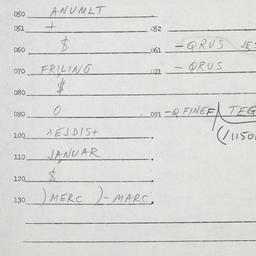 050 ANUMLT
051 + 052
060 $ 061 -QRUS JES
070 FRILING 071 -QRUS
080 $
090 0 091 -Q FINEF/ TEG
100 XEJDIS+ (/1150
110 JANUAR.
120 $.
130 )MERC )-MARC.